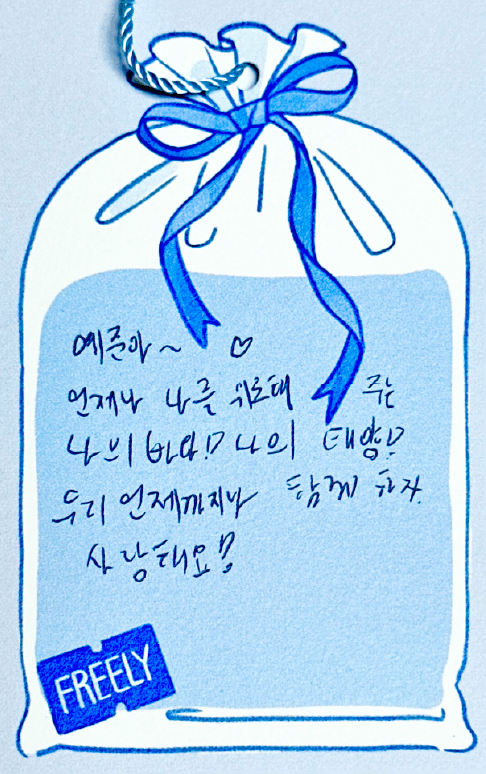 예준아~ ♡
언제나 나를 위로해 주는
나의 바다! 나의 태양!
우리 언제까지나 함께 하자
사랑해요!
FREELY